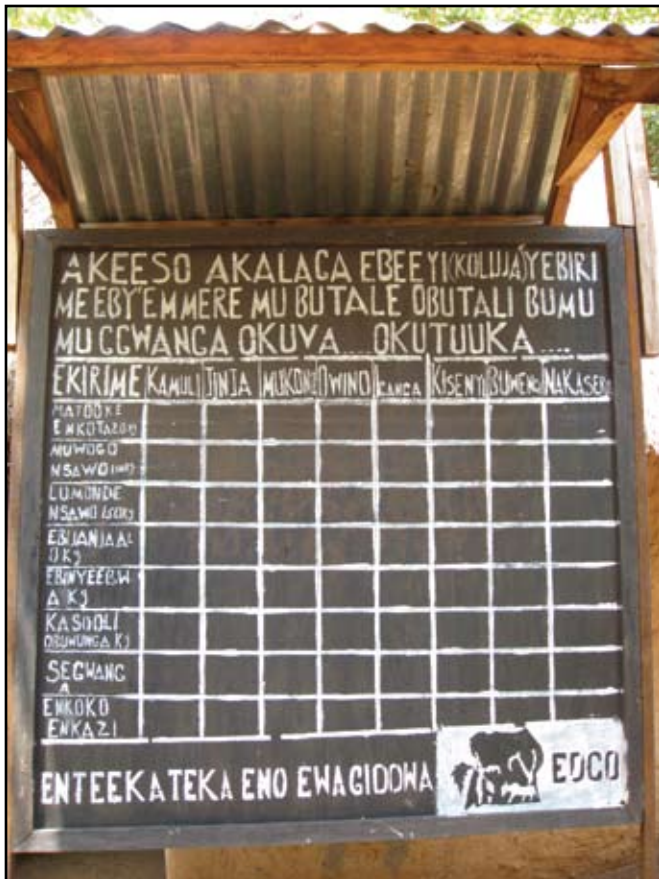 AKEESO AKALAGA EBEEYI (KOLUJA) YEBIRI
ME EBY'EMMERE MU BUTALE OBUTALI BUMU
MU GGWANGA OKUVA.... OKUTUUKA ....
EKIRIME KAMULI JINJA MUKONO OWINO KISENYI BUWENG NAKASERO
MATOOKE
ENKOTA
MUWOGO
NSAWO
LUMONDE
NSAWO (50K)
EBIJANJAAL
O Kg
EBINYEEBW
A Kg
KASOOLI
OBUWUNGA Kg
SEGWANG
A
ENKOKO
ENKAZI
ENTEEKATEKA ENO EWAGIDDWA EDCO